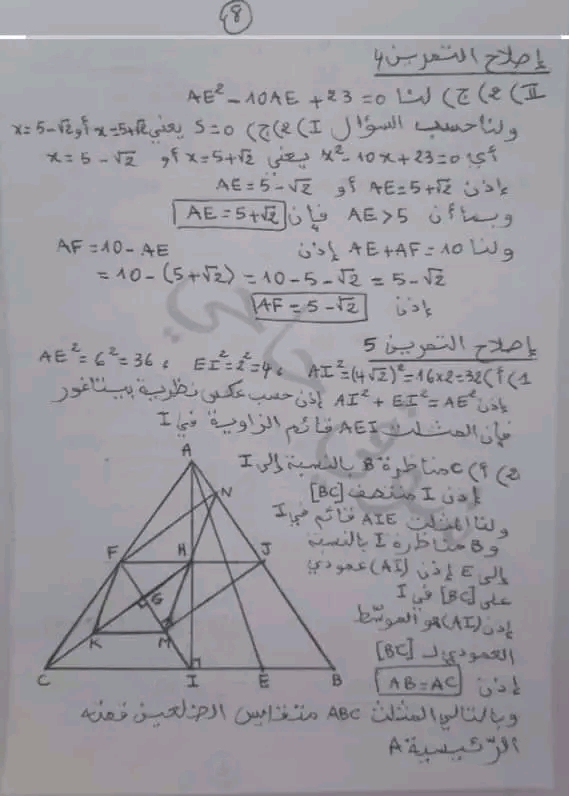 8
إصلاح التمرين 4
II) 2) ج) لنا AE² - 10AE + 23 = 0
ولنا حسب السؤال I) 2) ج) S = 0 يعني x = 5+√2 أو x = 5-√2
أي x² - 10x + 23 = 0 يعني x = 5+√2 أو x = 5-√2
إذن AE = 5+√2 أو AE = 5-√2
وبما أن AE > 5 فإن AE = 5+√2
ولنا AE + AF = 10 إذن AF = 10 - AE
= 10 - (5+√2) = 10 - 5 - √2 = 5 - √2
إذن AF = 5 - √2
إصلاح التمرين 5
1) أ) AI² = (4√2)² = 16x2 = 32 ، EI² = 2² = 4 ، AE² = 6² = 36
إذن AI² + EI² = AE² إذن حسب عكس نظرية بيتاغور
فإن المثلث AEI قائم الزاوية في I
2) أ) C مناظرة B بالنسبة إلى I
إذن I منتصف [BC]
ولنا المثلث AIE قائم في I
و B مناظرة I بالنسبة
إلى E إذن (AI) عمودي
على [BC] في I
إذن (AI) هو الموسّط
العمودي لـ [BC]
إذن AB = AC
وبالتالي المثلث ABC متقايس الضلعين قمته
الرّئيسية A
A
N
F
H
J
G
K
M
C
I
E
B